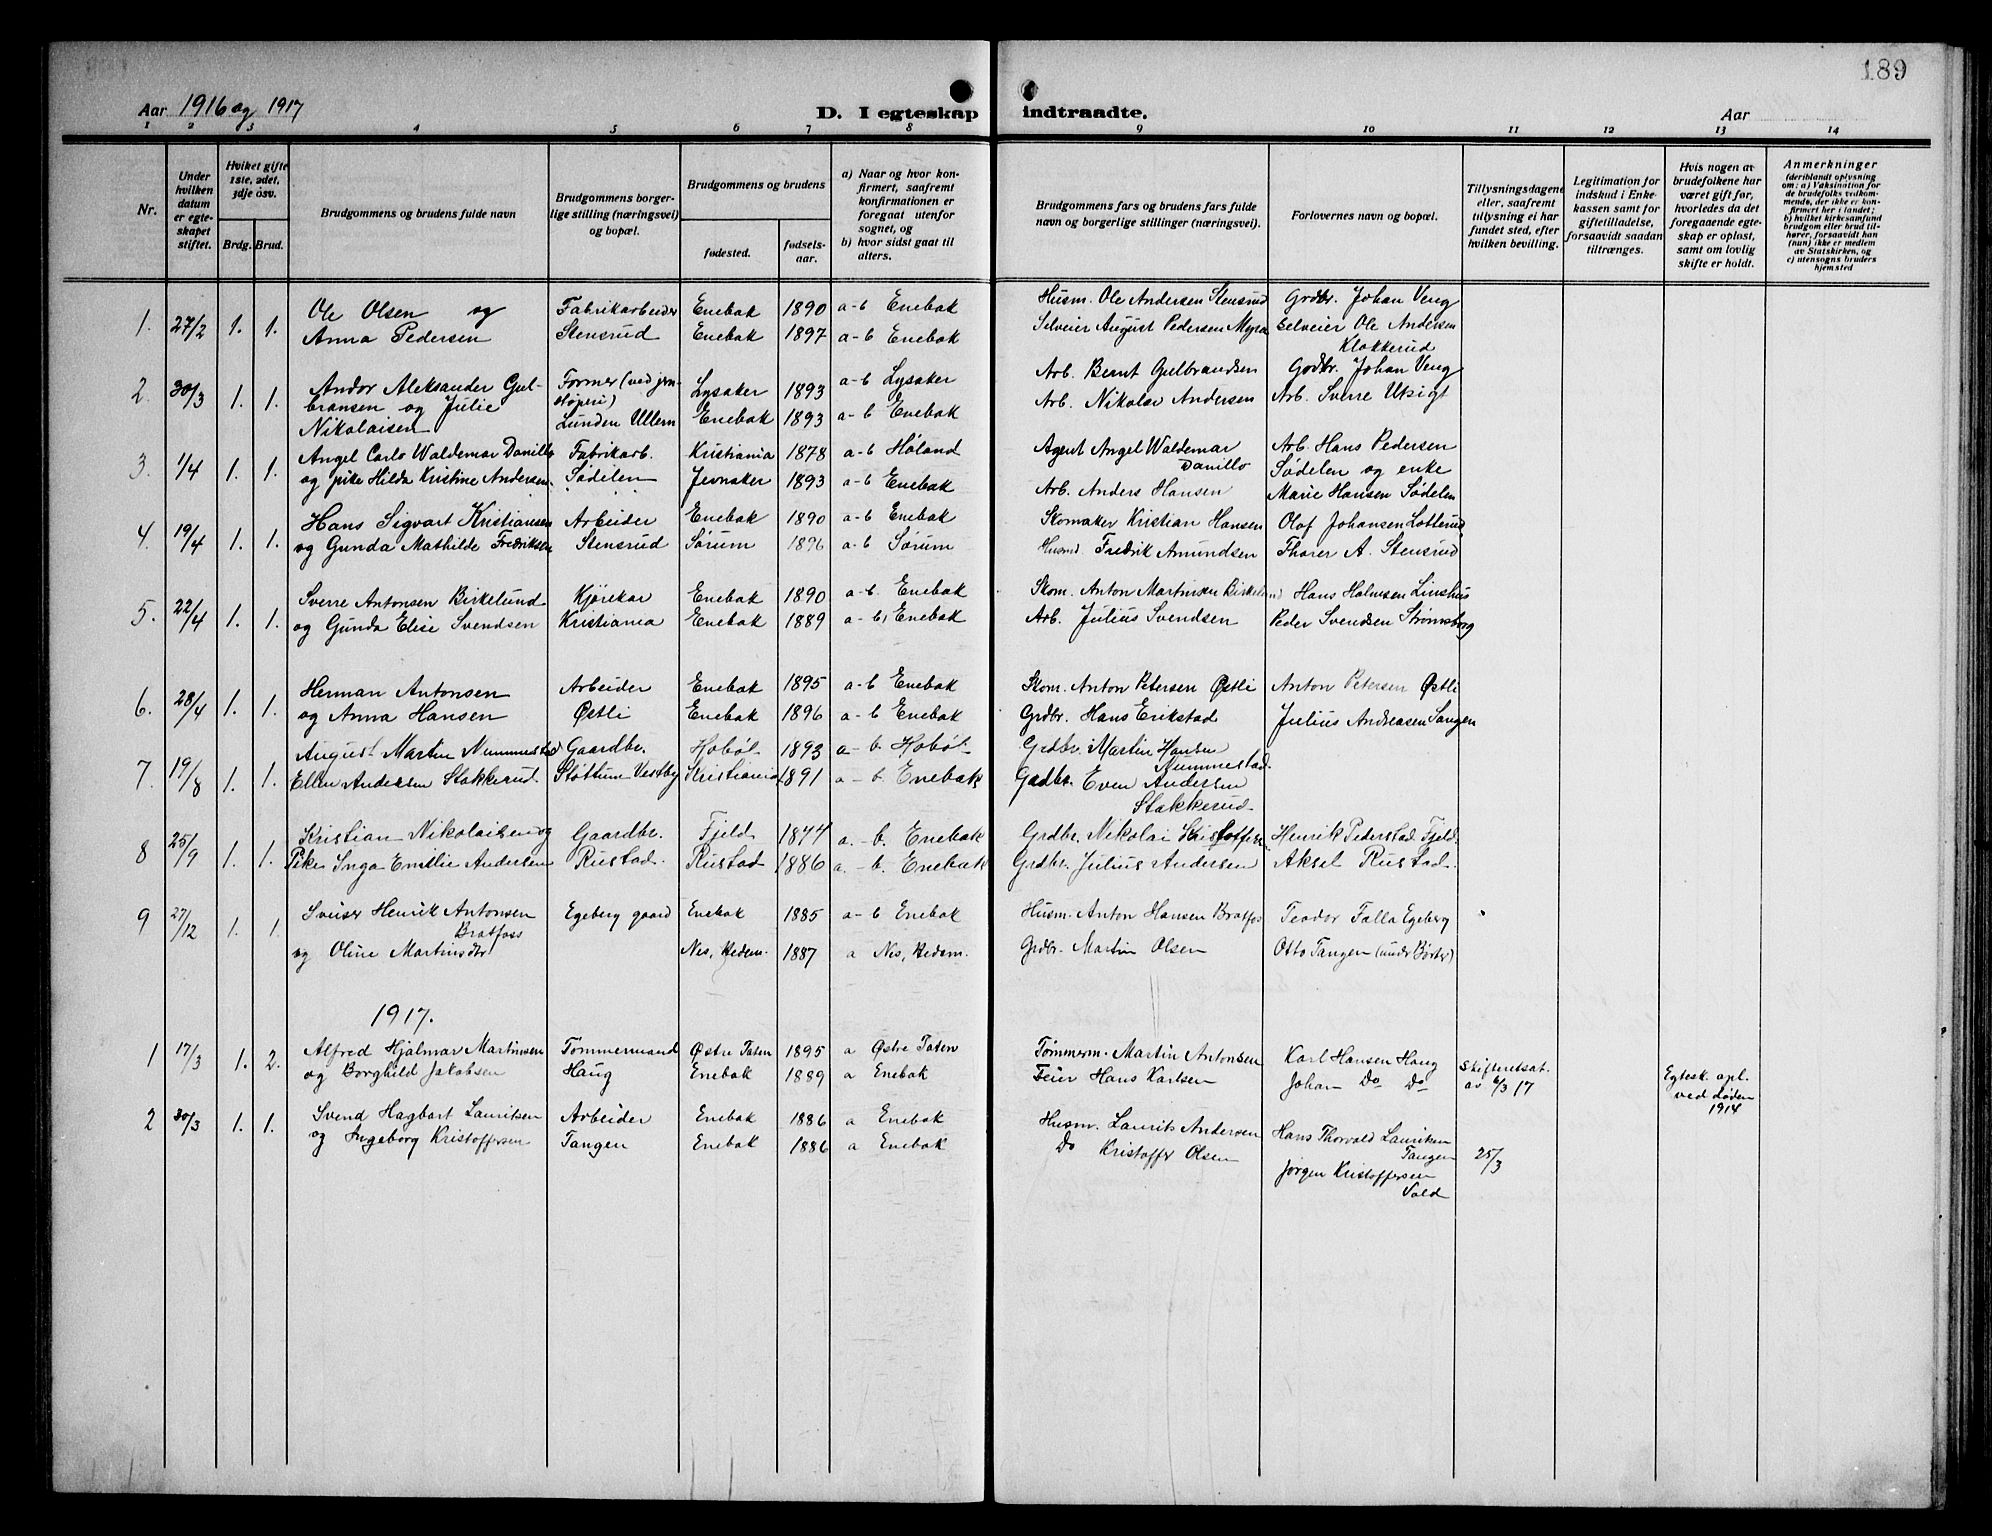 189
Aar 1916 og 1917 D. I egteskap indtraadte. Aar
1 2 3 4 5 6 7 8 9 10 11 12 13 14
Nr.
Under hvilken datum er egteskapet stiftet.
Hviket gifte 1ste, 2det, 3dje osv.
Brdg. Brud.
Brudgommens og brudens fulde navn
Brudgommens borgerlige stilling (næringsvei) og bopæl.
Brudgommens og brudens
fødested. fødselsaar.
a) Naar og hvor konfirmert, saafremt konfirmationen er foregaat utenfor sognet, og
b) hvor sidst gaat til alters.
Brudgommens fars og brudens fars fulde navn og borgerlige stillinger (næringsvei).
Forlovernes navn og bopæl.
Tillysningsdagene eller, saafremt tillysning ei har fundet sted, efter hvilken bevilling.
Legitimation for indskud i Enkekassen samt for giftetilladelse, forsaavidt saadan tiltrænges.
Hvis nogen av brudefolkene har været gift før, hvorledes da det foregaaende egteskap er opløst, samt om lovlig skifte er holdt.
Anmerkninger (deriblandt oplysning om: a) Vaksination for de brudefolks vedkommende, der ikke er konfirmert her i landet; b) hvilket kirkesamfund brudgom eller brud tilhører, forsaavidt han (hun) ikke er medlem av Statskirken, og c) utensogns bruders hjemsted
1. 27/2 1. 1. Ole Olsen og Fabrikarbeider Enebak 1890 a-b Enebak Husm. Ole Andersen Stensrud Grdbr. Johan Veng
Anna Pedersen Stensrud Enebak 1897 a-b Enebak Selveier August Pedersen Myra Selveier Ole Andersen
Klokkerud
2. 30/3 1. 1. Andor Aleksander Gul- Former (ved jern- Lysaker 1893 a-b Lysaker Arb. Bernt Gulbrandsen Grdbr. Johan Veng
bransen og Julie støperi) Arb. Nikolai Andersen Arb. Sverre Utsigt
Nikolaisen Lunden Ullern Enebak 1893 a-b Enebak
3. 1/4 1. 1. Angel Carlo Waldemar Danillo Fabrikarb. Kristiania 1878 a-b Høland Agent Angel Waldemar Arb. Hans Pedersen
Danillo Sødelen og enke
og pike Hilda Kristine Andersen. Sødelen Jevnaker 1893 a-b Enebak Arb. Anders Hansen Marie Hansen Sødelen
4. 19/4 1. 1. Hans Sigvart Kristiansen Arbeider Enebak 1890 a-b Enebak Skomaker Kristian Hansen Olaf Johansen Lotterud
og Gunda Mathilde Fredriksen Stensrud Sørum 1896 a-b Sørum Husmd. Fredrik Amundsen Thorer A. Stensrud
5. 22/4 1. 1. Sverre Antonsen Birkelund Kjørekar Enebak 1890 a-b Enebak Skom. Anton Martinsen Birkelund Hans Holmsen Linshus
og Gunda Elise Svendsen Kristiania Enebak 1889 a-b, Enebak Arb. Julius Svendsen Peder Svendsen Strømsborg
6. 28/4 1. 1. Herman Antonsen Arbeider Enebak 1895 a-b Enebak Skom. Anton Petersen Østli Anton Petersen Østli
og Anna Hansen Østli Enebak 1896 a-b Enebak Grdbr. Hans Erikstad Julius Andreasen Tangen
7. 19/8 1. 1. August Martin Nummestad Gaardbr. Hobøl 1893 a-b. Hobøl Grdbr. Martin Hansen
Nummestad.
Ellen Andersen Stakkerud. Støttum Vestby Kristiania 1891 a-b. Enebak Grdbr. Even Andersen
Stakkerud.
8 25/9 1. 1. Kristian Nikolaisen og Gaardbr. Fjeld 1877 a.-b. Enebak Grdbr. Nikolai Kristoffersen Henrik Pederstad Fjeld.
Pike Inga Emilie Andersen Rustad. Rustad 1886 a.-b. Enebak Grdbr. Julius Andersen Aksel Rustad.
9 27/12 1. 1. Sveiser Henrik Antonsen Egeberg gaard Enebak 1885 a-b Enebak Husm. Anton Hansen Bratfos Teodor Talla Egeberg
Bratfoss
og Oline Martinsdtr Nes, Hedem. 1887 a Nes, Hedem. Grdbr. Martin Olsen Otto Tangen (under Børter)
1917.
1 17/3 1. 2. Alfred Hjalmar Martinsen Tømmermand Østre Toten 1895 a Østre Toten Tømmerm. Martin Antonsen Karl Hansen Haug Skifteretsat. Egtesk. opl.
og Borghild Jakobsen Haug Enebak 1889 a Enebak Feier Hans Karlsen Johan Do Do av 6/3 17 ved døden
1914
2 30/3 1. 1. Svend Hagbart Lauritsen Arbeider Enebak 1886 a Enebak Husm. Laurits Andersen Hans Thorvald Lauritsen
Tangen 25/3
og Ingeborg Kristoffersen Tangen Enebak 1886 a Enebak Do Kristoffer Olsen Jørgen Kristoffersen
Vold